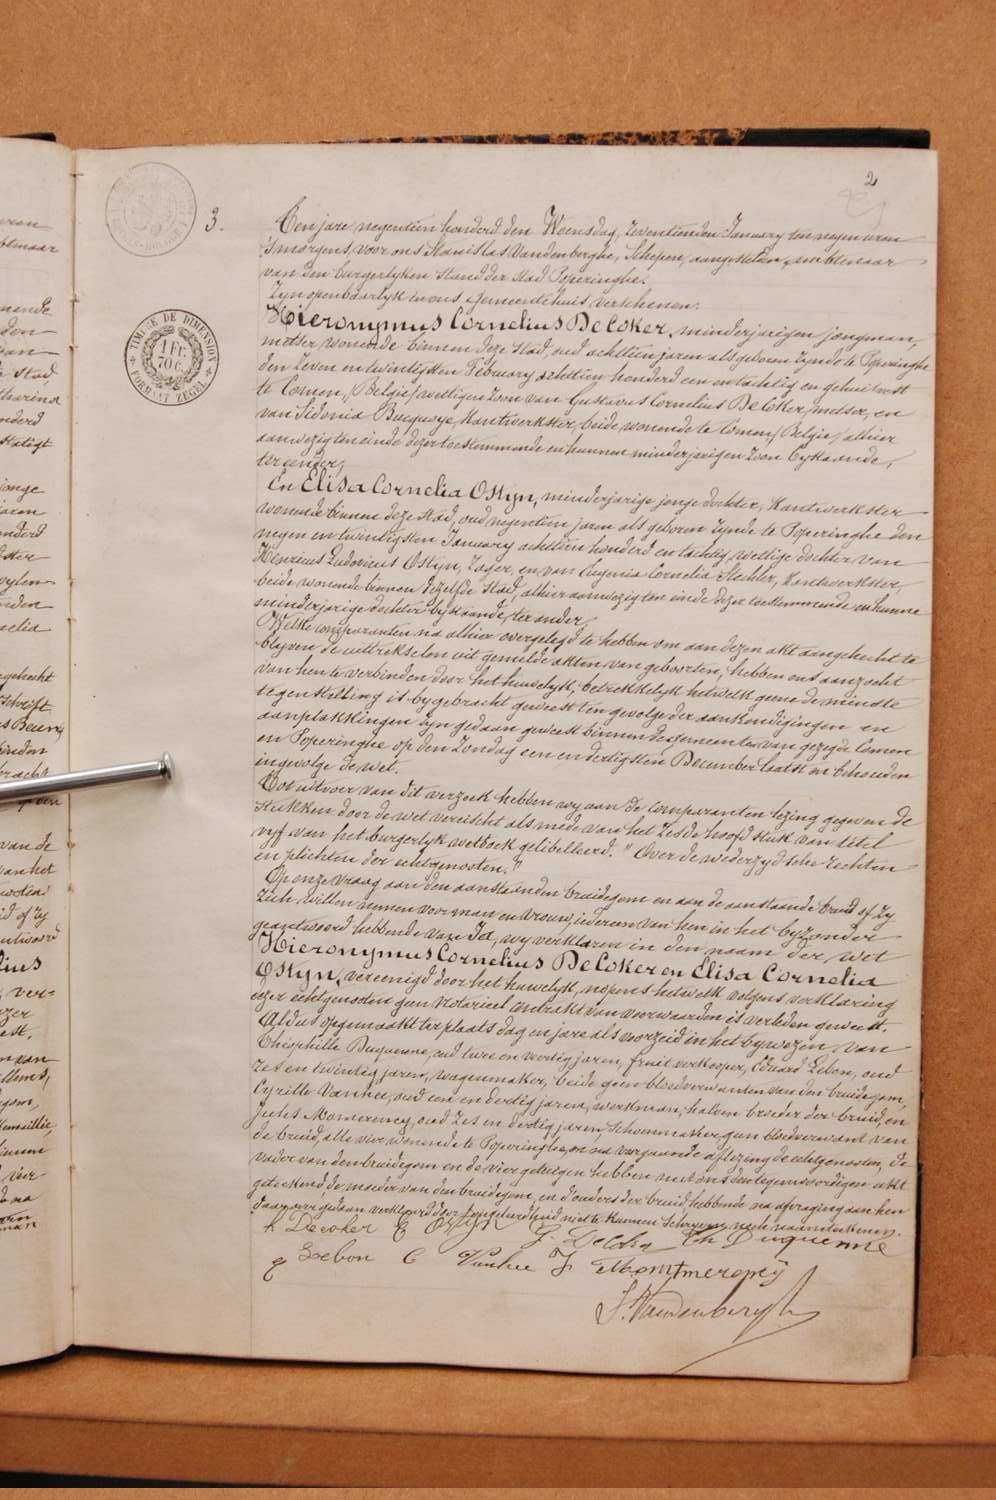 2
3.
TIMBRE DE DIMENSION
1 FR. 70 C.
FORMAAT ZEGEL
Ten jare negentien honderd den Woensdag, zeventienden January ten negen uren
'smorgens, voor ons Stanislas Vandenberghe, Schepen, aangestelden ambtenaar
van den burgerlyken stand der stad Poperinghe.
Zyn openbaarlyk in ons Gemeentehuis verschenen:
Hieronymus Cornelius De Coker, minderjarigen jongman,
metser wonende binnen deze stad, oud achttien jaren als geboren zynde te Poperinghe
den zeven en twintigsten February achttien honderd een en tachtig en gehuisvest
te Comen, (Belgie) wettigen zoon van Gustavus Cornelius De Coker, metser, en
van Sidonia Bucquoye, Kantwerkster, beide wonende te Comen (Belgie) alhier
aanwezig ten einde dezer toestemmende en hunnen minderjarigen zoon bystaande,
ter eender;
En Elisa Cornelia Ostyn, minderjarige jonge dochter, Kantwerkster
wonende binnen deze stad, oud negentien jaren als geboren zynde te Poperinghe den
negen en twintigsten January achttien honderd en tachtig, wettige dochter van
Henricus Ludovicus Ostyn, Zager, en van Eugenia Cornelia Stechler, Kantwerkster,
beide wonende binnen dezelfde stad, alhier aanwezig ten einde dezer toestemmende en hunne
minderjarige dochter bystaande, ter ander,
Welke comparanten na alhier overgelegd te hebben om aan dezen akt aangehecht te
blyven de uittrekselen uit gemelde akten van geboorten, hebben ons aanzocht
van hen te verbinden door het huwelyk, betrekkelyk hetwelk geene de minste
tegenstelling is bygebracht geweest ten gevolge der aankondigingen en
aanplakkingen zyn gedaan geweest binnen de gemeenten van gezegde Comen
en Poperinghe op den Zondag een en dertigsten December laatst en behouden
ingevolge de wet.
Tot uitvoer van dit verzoek hebben wy aan de comparanten lezing gegeven de
stukken door de wet vereischt als mede van het zesde hoofdstuk van titel
vyf van het burgerlyk wetboek gelibelleerd. "Over de wederzydsche rechten
en plichten der echtgenooten."
Op onze vraag aan den aanstaanden bruidegom en aan de aanstaande bruid of zy
zich willen nemen voor man en vrouw, iedereen van hen in het byzonder
geantwoord hebbende van Ja, wy verklaren in den naam der wet
Hieronymus Cornelius De Coker en Elisa Cornelia
Ostyn, vereenigd door het huwelyk, nopens hetwelk volgens verklaring
dezer echtgenooten geen Notarieel contrakt van voorwaarden is verleden geweest.
Aldus opgemaakt ter plaats dag en jare als voorzeid in het bywezen van
Théophille Duquenne, oud twee en veertig jaren, fruit verkooper, Eduard Lebon, oud
zes en twintig jaren, wagenmaker, beide geen bloedverwanten van den bruidegom,
Cyrille Vanhee, oud een en dertig jaren, werkman, halven broeder der bruid, en
Jules Momerency, oud zes en dertig jaren, schoenmaker, geen bloedverwant van
de bruid, alle vier wonende te Poperinghe, en na voorgaande aflezing de echtgenooten, de
vader van den bruidegom en de vier getuigen hebben met ons den tegenwoordigen akt
geteekend, de moeder van den bruidegom, en d'ouders der bruid hebbende na afvraging aan hen
daarover gedaan verklaard door ongeleerdheid niet te kunnen schryven noch naamteekenen.
h Decoker E Ostyn G. DeCoker Th Duquenne
e Lebon C Vanhee J Montmerency
S. Vandenberghe